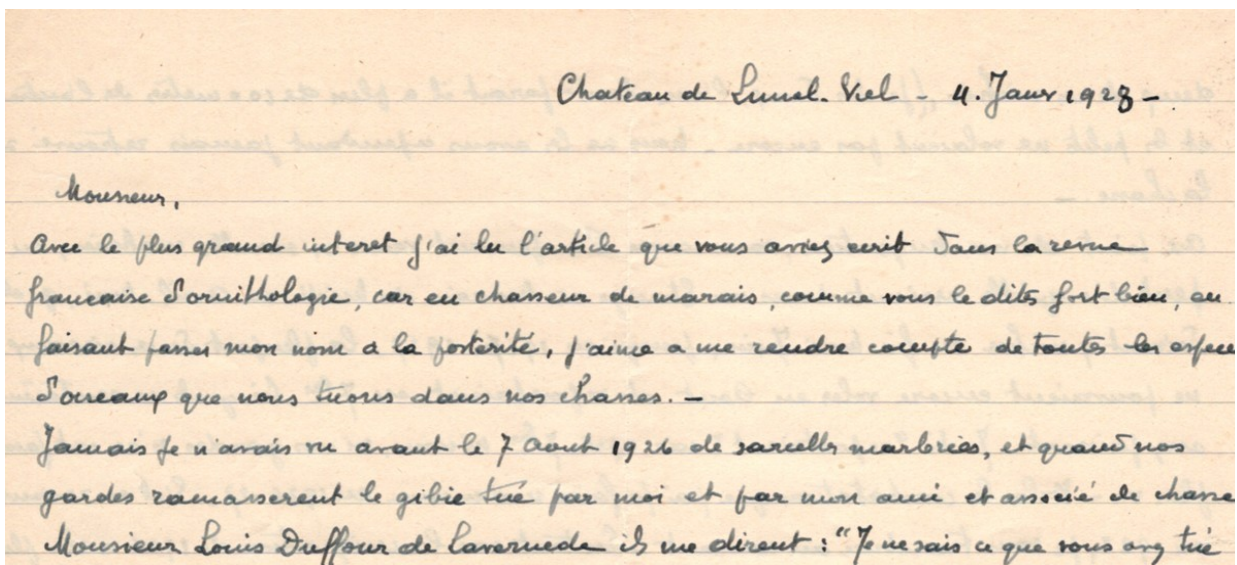 Chateau de Lunel-Viel - 11. Janv 1928 -
Monsieur,
Avec le plus grand interet j'ai lu l'article que vous aviez ecrit dans la revue
francaise d'ornithologie, car en chasseur de marais, comme vous le dites fort bien, en
faisant passer mon nom a la posterité, j'aime a me rendre compte de toutes les espece
d'oiseaux que nous tuons dans nos chasses. -
Jamais je n'avais vu avant le 7 Aout 1926 de sarcelles marbrées, et quand nos
gardes ramasserent le gibie tué par moi et par mon ami et associé de chasse
Monsieur Louis Duffour de Lavernede ils me dirent : "Je ne sais ce que vous avez tué